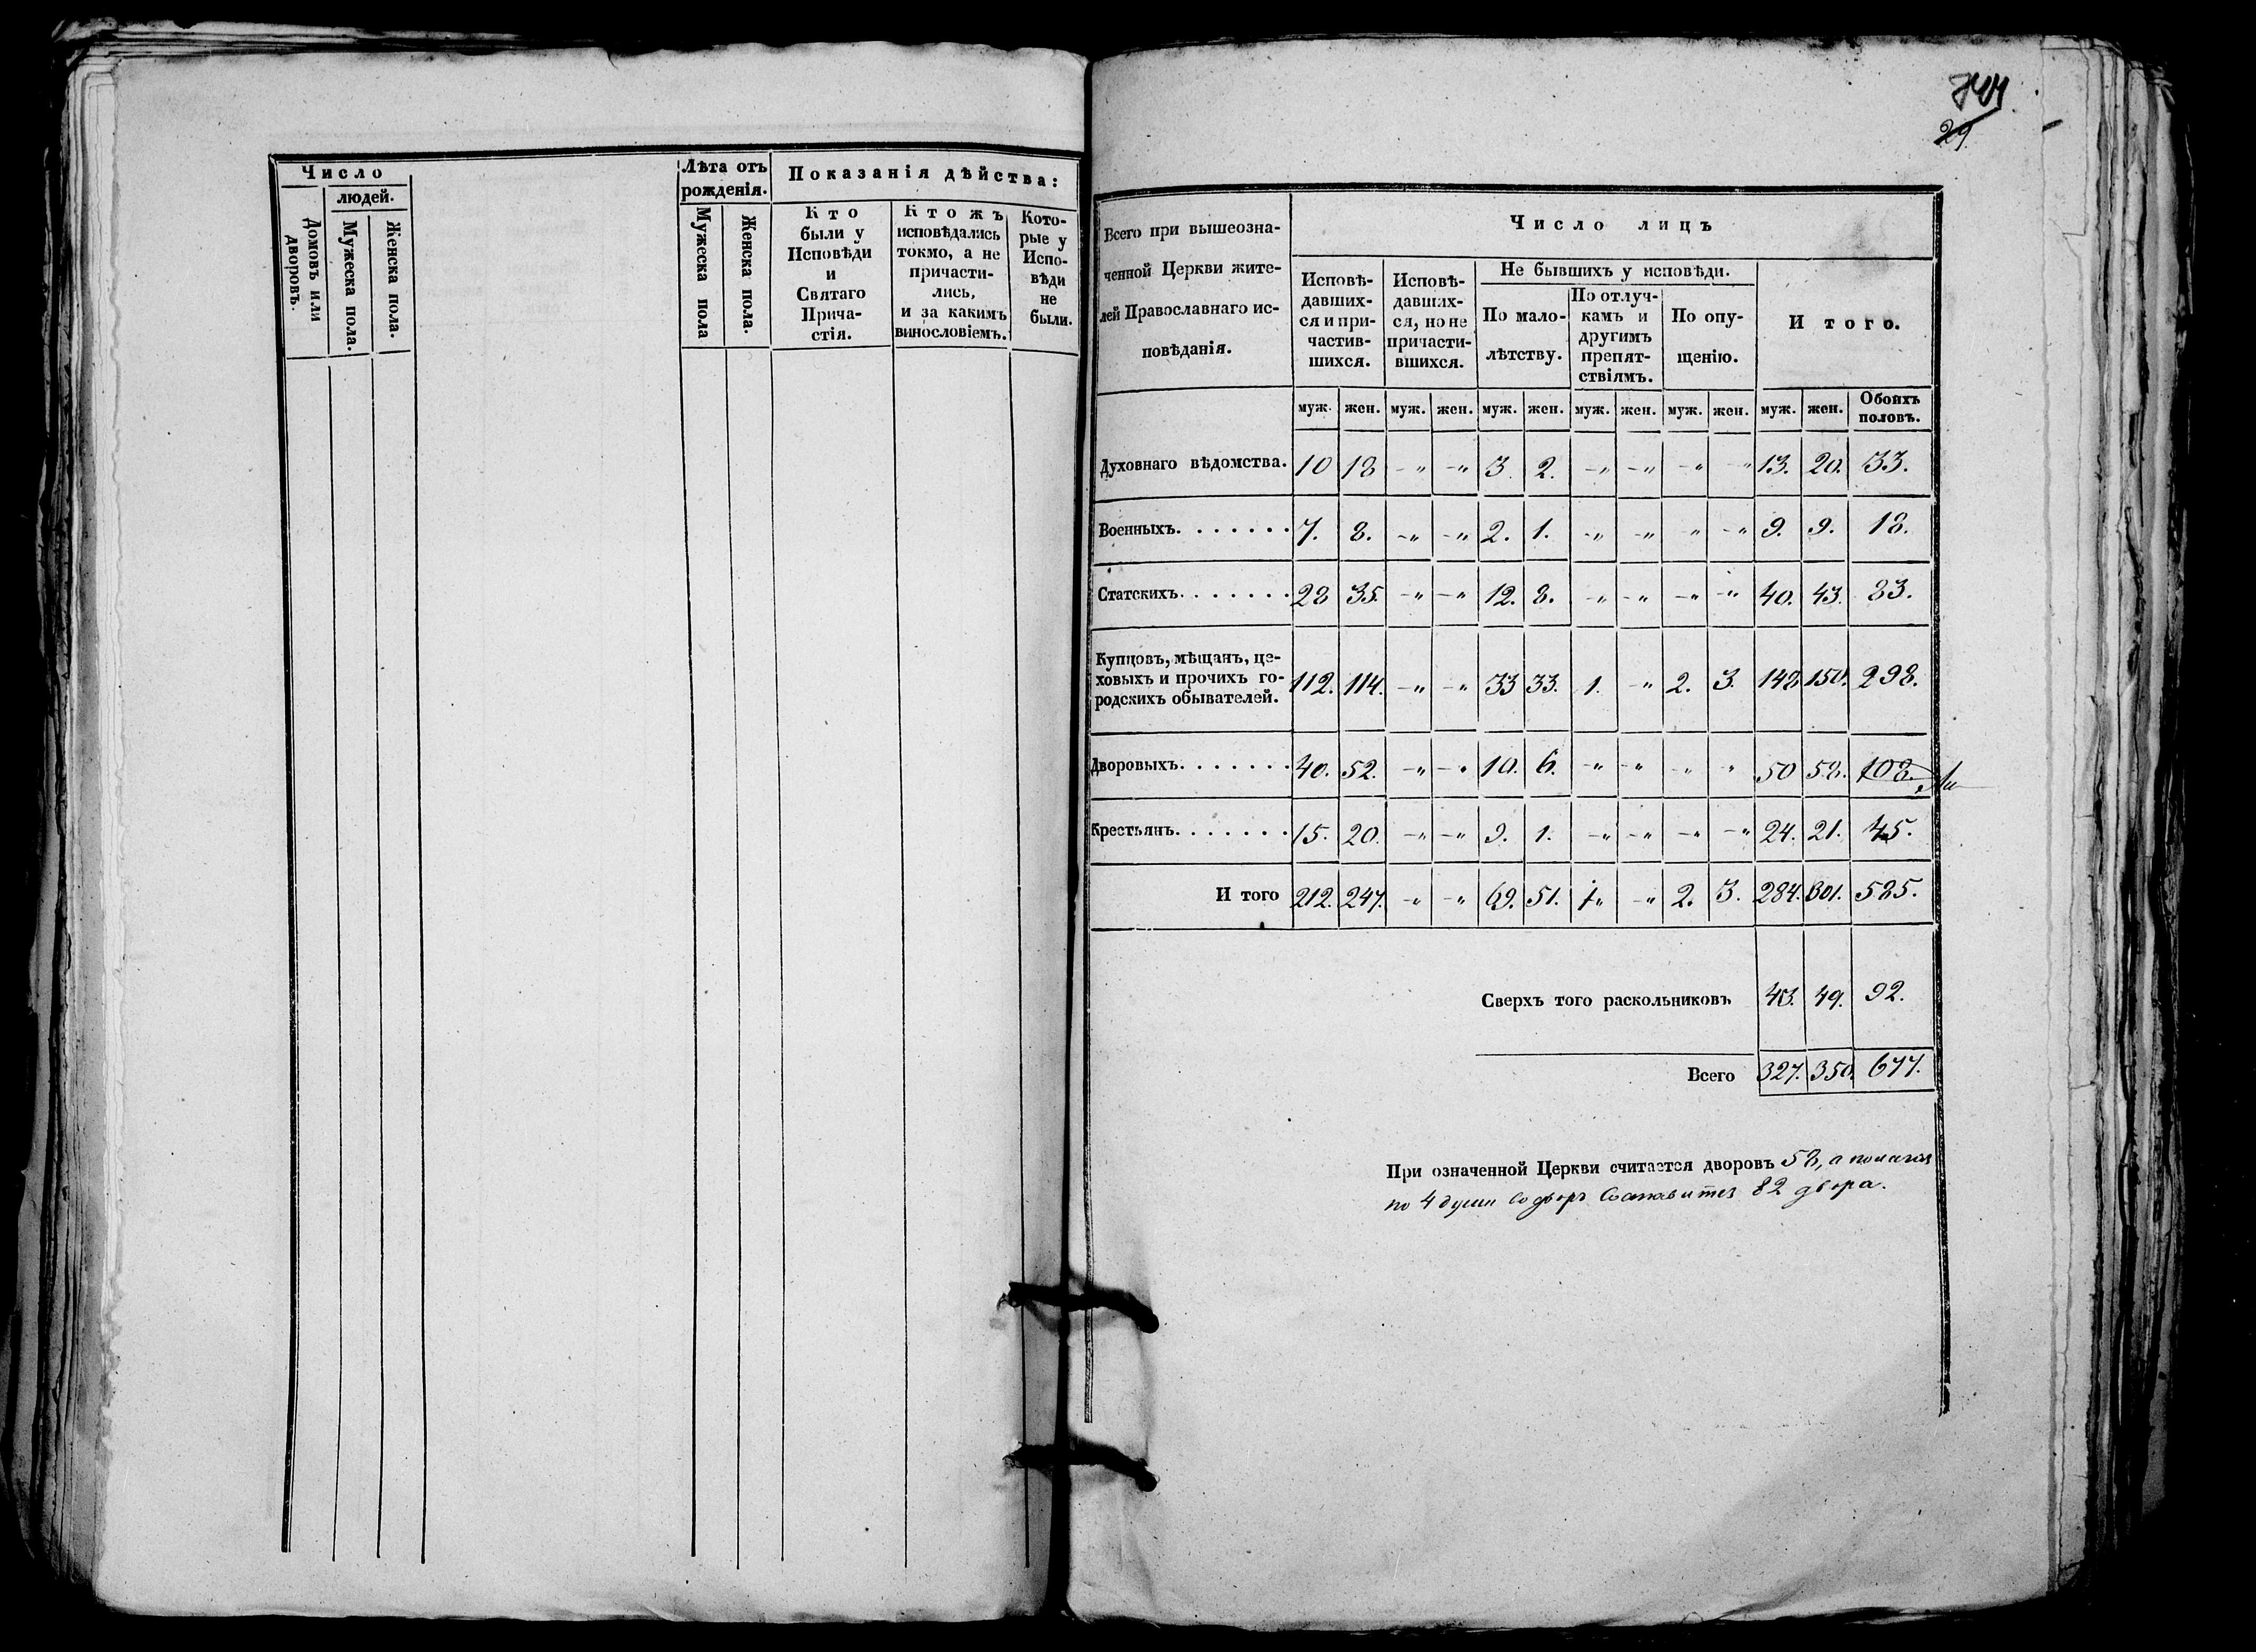 Число
людей.
Домовъ или дворовъ.
Мужеска пола.
Женска пола.
Лѣта отъ
рожденія.
Мужеска пола
Женска пола.
Показанія дѣйства:
Кто
были у
Исповѣди
и
Святаго
Прича-
стія.
Ктожъ
исповѣдались
токмо, а не
причасти-
лись,
и за какимъ
винословіемъ.
Кото-
рые у
Испо-
вѣди
не
были.
29
Всего при вышеозна-
ченной Церкви жите-
лей Православнаго ис-
повѣданія.
Число лицъ
Исповѣ-
давших-
ся и при-
частив-
шихся.
Исповѣ-
давших-
ся, но не
причасти-
вшихся.
Не бывшихъ у исповѣди.
По мало-
лѣтству.
По отлуч-
камъ и
другимъ
препят-
ствіямъ.
По опу-
щенію.
И того.
муж. жен. муж. жен. муж. жен. муж. жен. муж. жен. муж. жен. Обоихъ половъ.
Духовнаго вѣдомства. 10 18 -„ -„ 3. 2. -„ -„ -„ -„ 13. 20. 33.
Военныхъ. . . . . . . 7. 8. -„ -„ 2. 1. -„ -„ -„ -„ 9. 9. 18.
Статскихъ. . . . . . . 28 35. -„ -„ 12. 8. -„ -„ -„ -„ 40. 43. 83.
Купцовъ, мѣщанъ, це-
ховыхъ и прочихъ го-
родскихъ обывателей. 112. 114. -„ -„ 33 33. 1. -„ 2. 3. 148 150. 298.
Дворовыхъ. . . . . . . 40. 52. -„ -„ 10. 6. -„ -„ -„ -„ 50 58. 108.
Крестьянъ. . . . . . . 15. 20. -„ -„ 9. 1. -„ -„ -„ -„ 24. 21. 45.
И того 212. 247. -„ -„ 69. 51. 1„ -„ 2. 3. 284. 301. 585.
Сверхъ того раскольниковъ 43. 49. 92.
Всего 327. 350. 677.
При означенной Церкви считается дворовъ 58, а полагая
по 4 души во дворъ составитъ 82 двора.